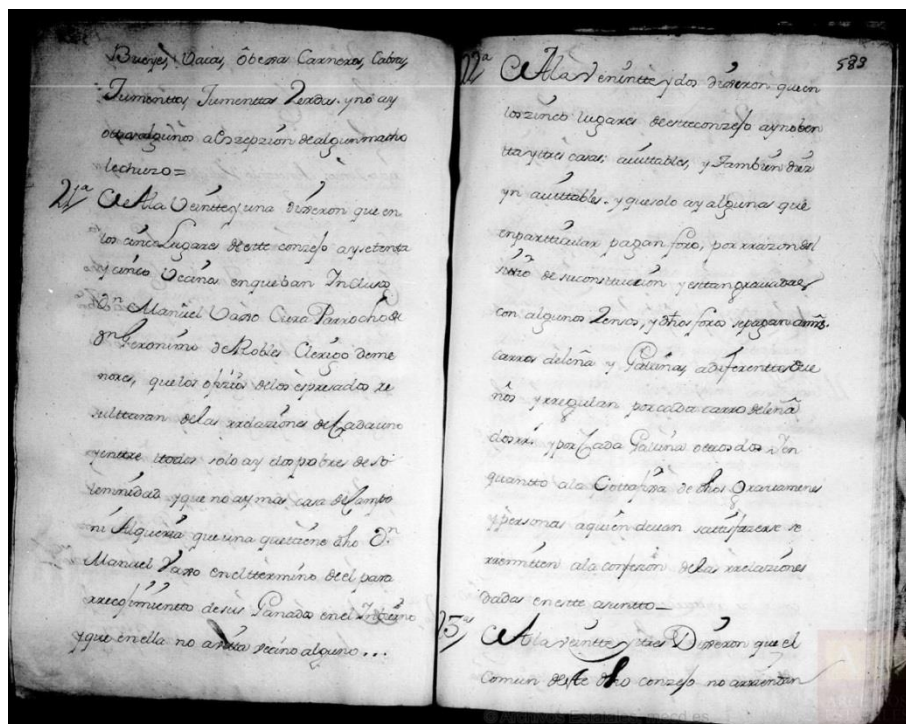 Bueyes, Vacas, obexas Carneros, Cabras,
Jumentos, Jumentas Zerdos. y no ay
otros algunos a Eszepzion de algun macho
lechuzo=
21ª A la Veintte y una dixeron que en
los cinco Lugares de este conzejo ay setenta
y cinco Vecinos en que ban Inclusos
Dn Manuel Cura Parrocho
Dn Geronimo de Robles Clerigo de me
nores, que los ofizios de los espresados re
sulttaran de las rrelaziones de Cada uno
y enttre ttodos solo ay dos pobres de so
lemnidad y que no ay mas casa de Campo
ni Alqueria que una que tiene dho Dn
Manuel en el ttermino de el para
rrecojimientto de sus Ganados en el Inbierno
y que en ella no avita vecino alguno...
583
22ª A la Veintte y dos dixeron que en
los zinco lugares de este conzejo ay noben
tta y tres casas avittables, y Tambien diez
yn avittables. y que solo ay algunas que
en partticular pagan foro, por rrazon del
sitio de su constituzion y esttan gravadas
con algunos Zensos, y dhos foros se pagan
carros de leña y Gallinas, a diferenttes Due
ños y rregulan por cada carro de leña
dos rrs. y por Cada Gallina ottros dos y en
quantto a la de dhos Gravamenes
y personas a quien devan sattisfazerse se
rremitten a la confesion de las rrelaziones
dadas en este asuntto—
23ª A la veintte y ttres Dixeron que el
Comun de este dho conzejo no